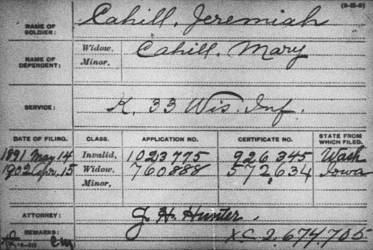 (3-15-2)
NAME OF SOLDIER: Cahill, Jeremiah
NAME OF DEPENDENT: Widow, Cahill, Mary
Minor,
SERVICE: K. 33 Wis. Inf.
DATE OF FILING. CLASS. APPLICATION NO. CERTIFICATE NO. STATE FROM WHICH FILED.
1891 May 14 Invalid, 1023775 926345 Wash
1902 Apr. 15 Widow, 760888 572634 Iowa
Minor,
ATTORNEY: J. H. Hunter.
REMARKS: XC 2,674,705